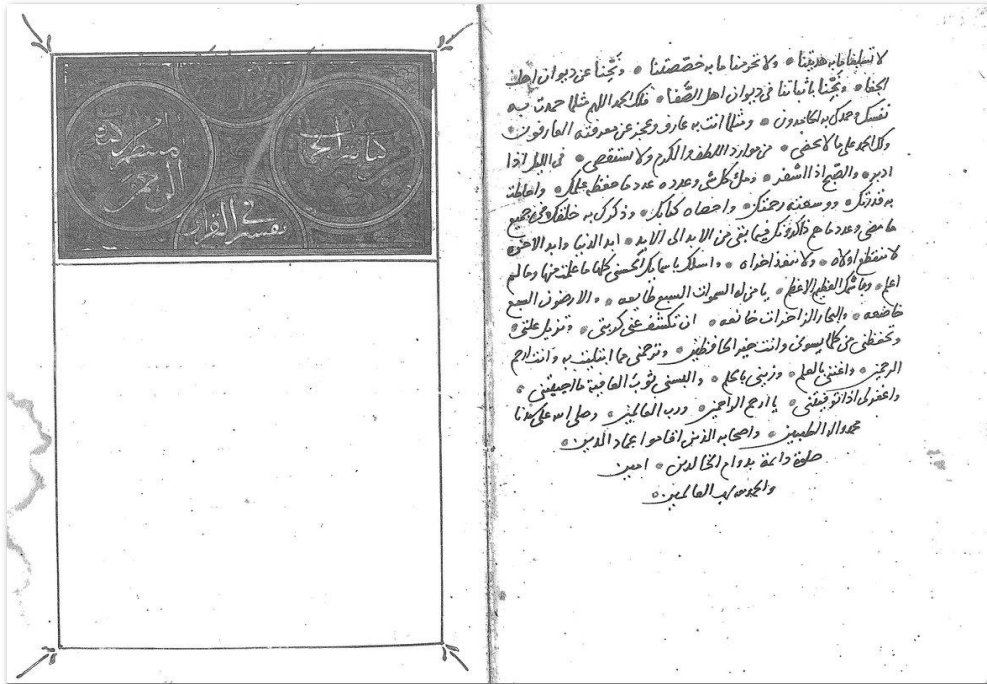 لا تسلبنا ما به هديتنا • ولا تحرمنا ما به خصصتنا • ونجنا عن ديوان اهل
الجفا • باثباتنا في ديوان اهل الصفا • فلك الحمد اللهم مثلما حمدت به
نفسك وحمدك به الحامدون • ومثلما انت به عارف وعجز عن معرفته العارفون •
ولك الحمد على ما لا يحصى • من موارد اللطف والكرم ولا يستقصى • في الليل اذا
ادبر • والصبح اذا اسفر • كلشئ وعدده عدد ما حفظه علمك • واحاطت
به قدرتك • ووسعته رحمتك • واحصاه كتابك • وذكرك به خلقك في جميع
ما مضى وعدد ما هم ذاكروك فيما بقى من الابد الى الابد • ابد الدنيا وابد الاخره
لا ينقطع اولاه • ولا ينفد اخراه • واسئلك باسمائك الحسنى كلها ما علمت منها وما لم
اعلم • وباسمك العظيم الاعظم • يا من له السموات السبع طايعه • والارضون السبع
خاضعه • والبحار الزاخرات خاشعه • ان تكشف عني كربتي • وتزيل علتي •
وتحفظني من كلما يسوءني وانت خير الحافظين • وترحمني مما ابتليت به وانت ارحم
الرحمين • واغنني بالعلم • وزيني بالحلم • والبسني ثوب العافية ما احييتني •
واغفر لي اذا توفيتني • يا ارحم الراحمين • ورب العالمين • وصلى الله على سيدنا
محمد واله الطيبين • واصحابه الذين اقاموا عماد الدين •
صلوة دائمة بدوام الخالدين • امين
والحمد لله رب العالمين •
كتاب
الرحمن
في تفسير القران